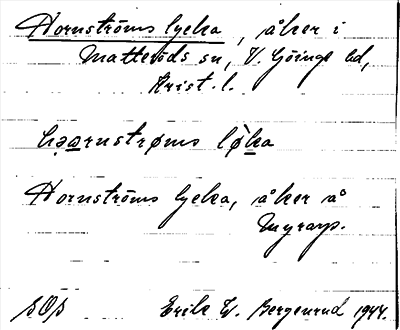 Hornströms lycka, åker i
Matteröds sn, V. Göinge hd,
Krist. l.
hornstrøms lø̀ka
Hornströms lycka, åker på
Myrarp.
Erik W. Bergenrud 1944.